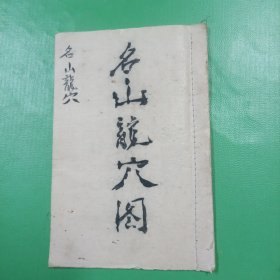 名山龍穴图
名山龍穴